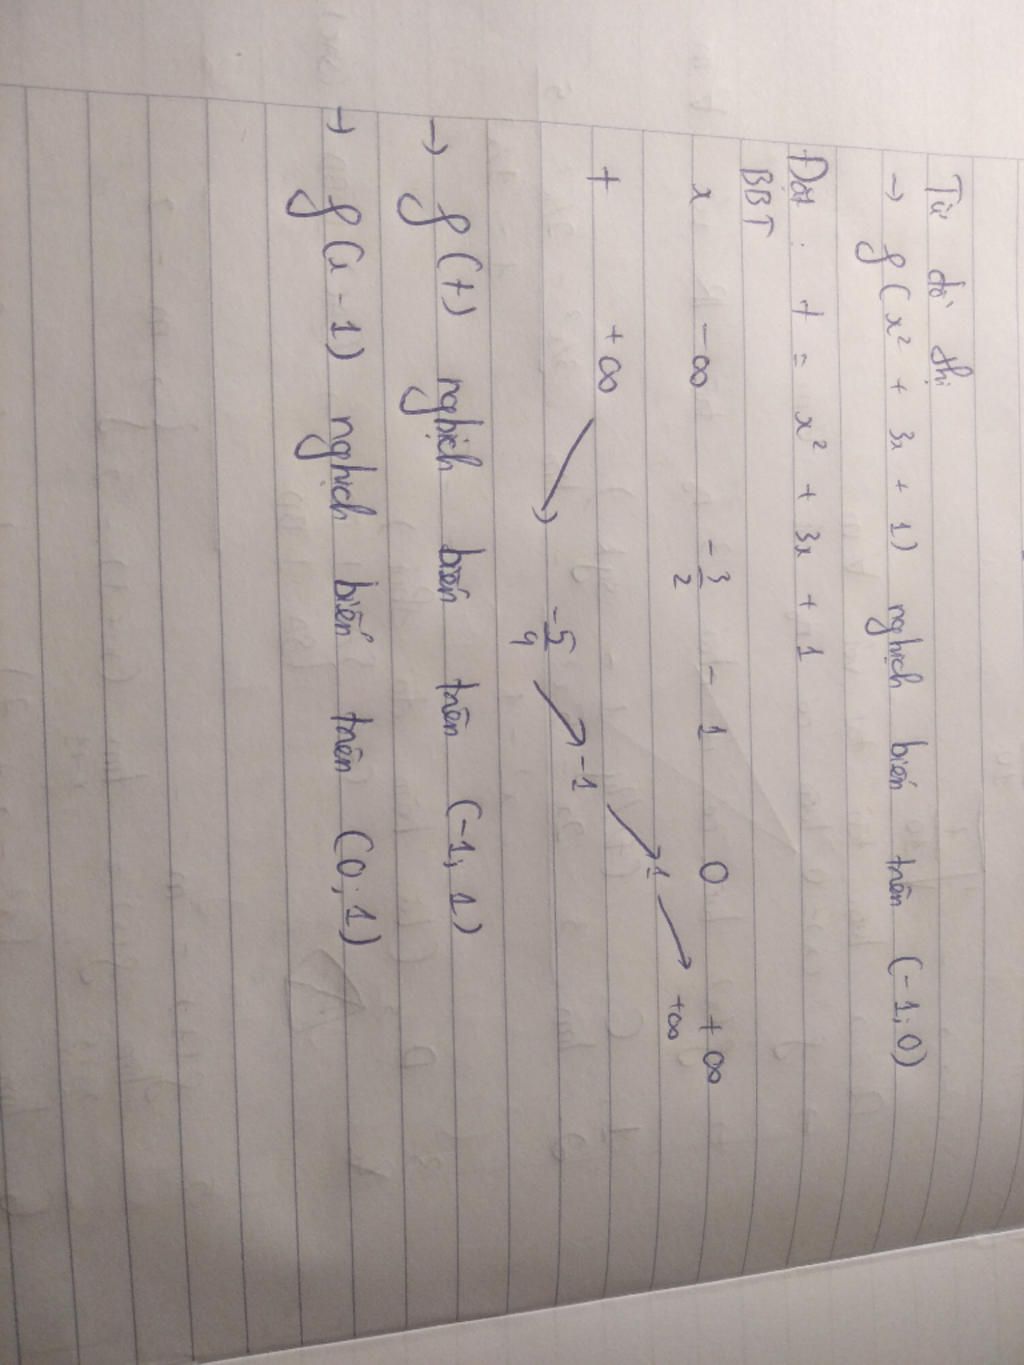 Từ đồ thị
→ f(x² + 3x + 1) nghịch biến trên (-1; 0)
Đặt : t = x² + 3x + 1
BBT
x -∞ -3/2 -1 0 +∞
t +∞ -5/4 -1 1 +∞
→ f(t) nghịch biến trên (-1; 1)
→ f(x-1) nghịch biến trên (0; 1)